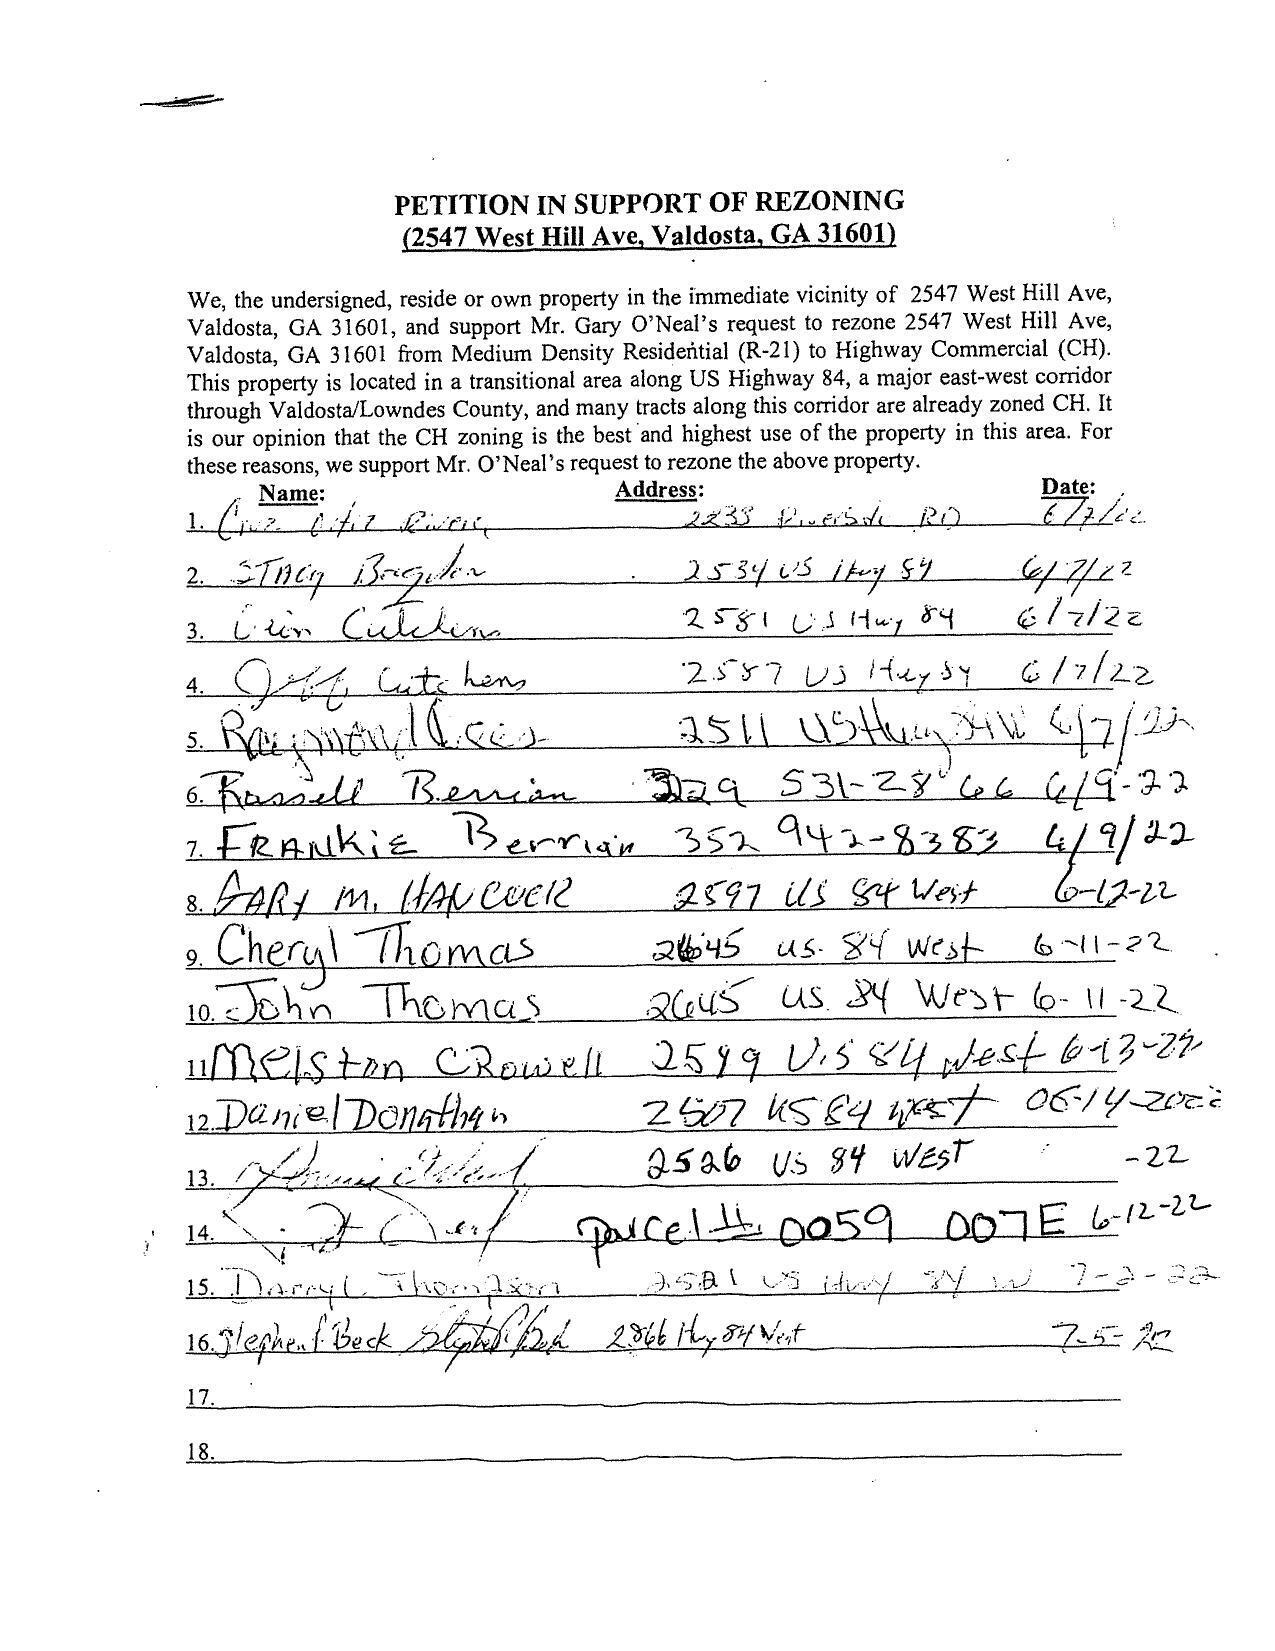 PETITION IN SUPPORT OF REZONING
(2547 West Hill Ave, Valdosta, GA 31601)
We, the undersigned, reside or own property in the immediate vicinity of 2547 West Hill Ave,
Valdosta, GA 31601, and support Mr. Gary O'Neal's request to rezone 2547 West Hill Ave,
Valdosta, GA 31601 from Medium Density Residential (R-21) to Highway Commercial (CH).
This property is located in a transitional area along US Highway 84, a major east-west corridor
through Valdosta/Lowndes County, and many tracts along this corridor are already zoned CH. It
is our opinion that the CH zoning is the best and highest use of the property in this area. For
these reasons, we support Mr. O'Neal's request to rezone the above property.
Name: Address: Date:
1. Riverside RD 6/7/22
2. STACY 2534 US Hwy 84 6/7/22
3. 2581 US Hwy 84 6/7/22
4. Jeff Cutchens 2587 US Hwy 84 6/7/22
5. Raymond 2511 US Hwy 84 W 6/7/22
6. Russell Berrian 229 531-2866 6/9-22
7. FRANKiE Berrian 352 942-8383 6/9/22
8. GARY M. HANCOCK 2597 US 84 West 6-12-22
9. Cheryl Thomas 2645 US. 84 West 6-11-22
10. John Thomas 2645 US. 84 West 6-11-22
11 Melston CRowell 2599 U.S 84 West 6-13-22
12. Daniel Donathan 2507 US 84 West 06-14-2022
13. 2526 US 84 WEST -22
14. parcel #. 0059 007E 6-12-22
15. Darryl Thompson 2521 US Hwy 84 W 7-2-22
16. Stephen Beck 2866 Hwy 84 West 7-5-22
17.
18.